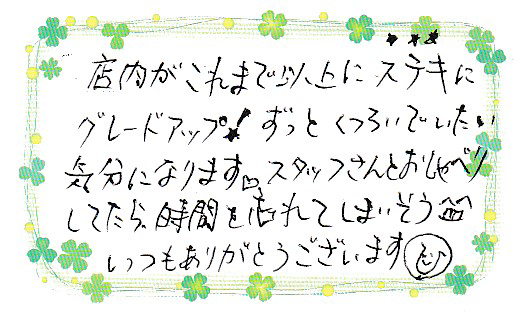 店内がこれまで以上にステキに
グレードアップ！ずっとくつろいでいたい
気分になります。スタッフさんとおしゃべり
してたら、時間を忘れてしまいそう
いつもありがとうございます